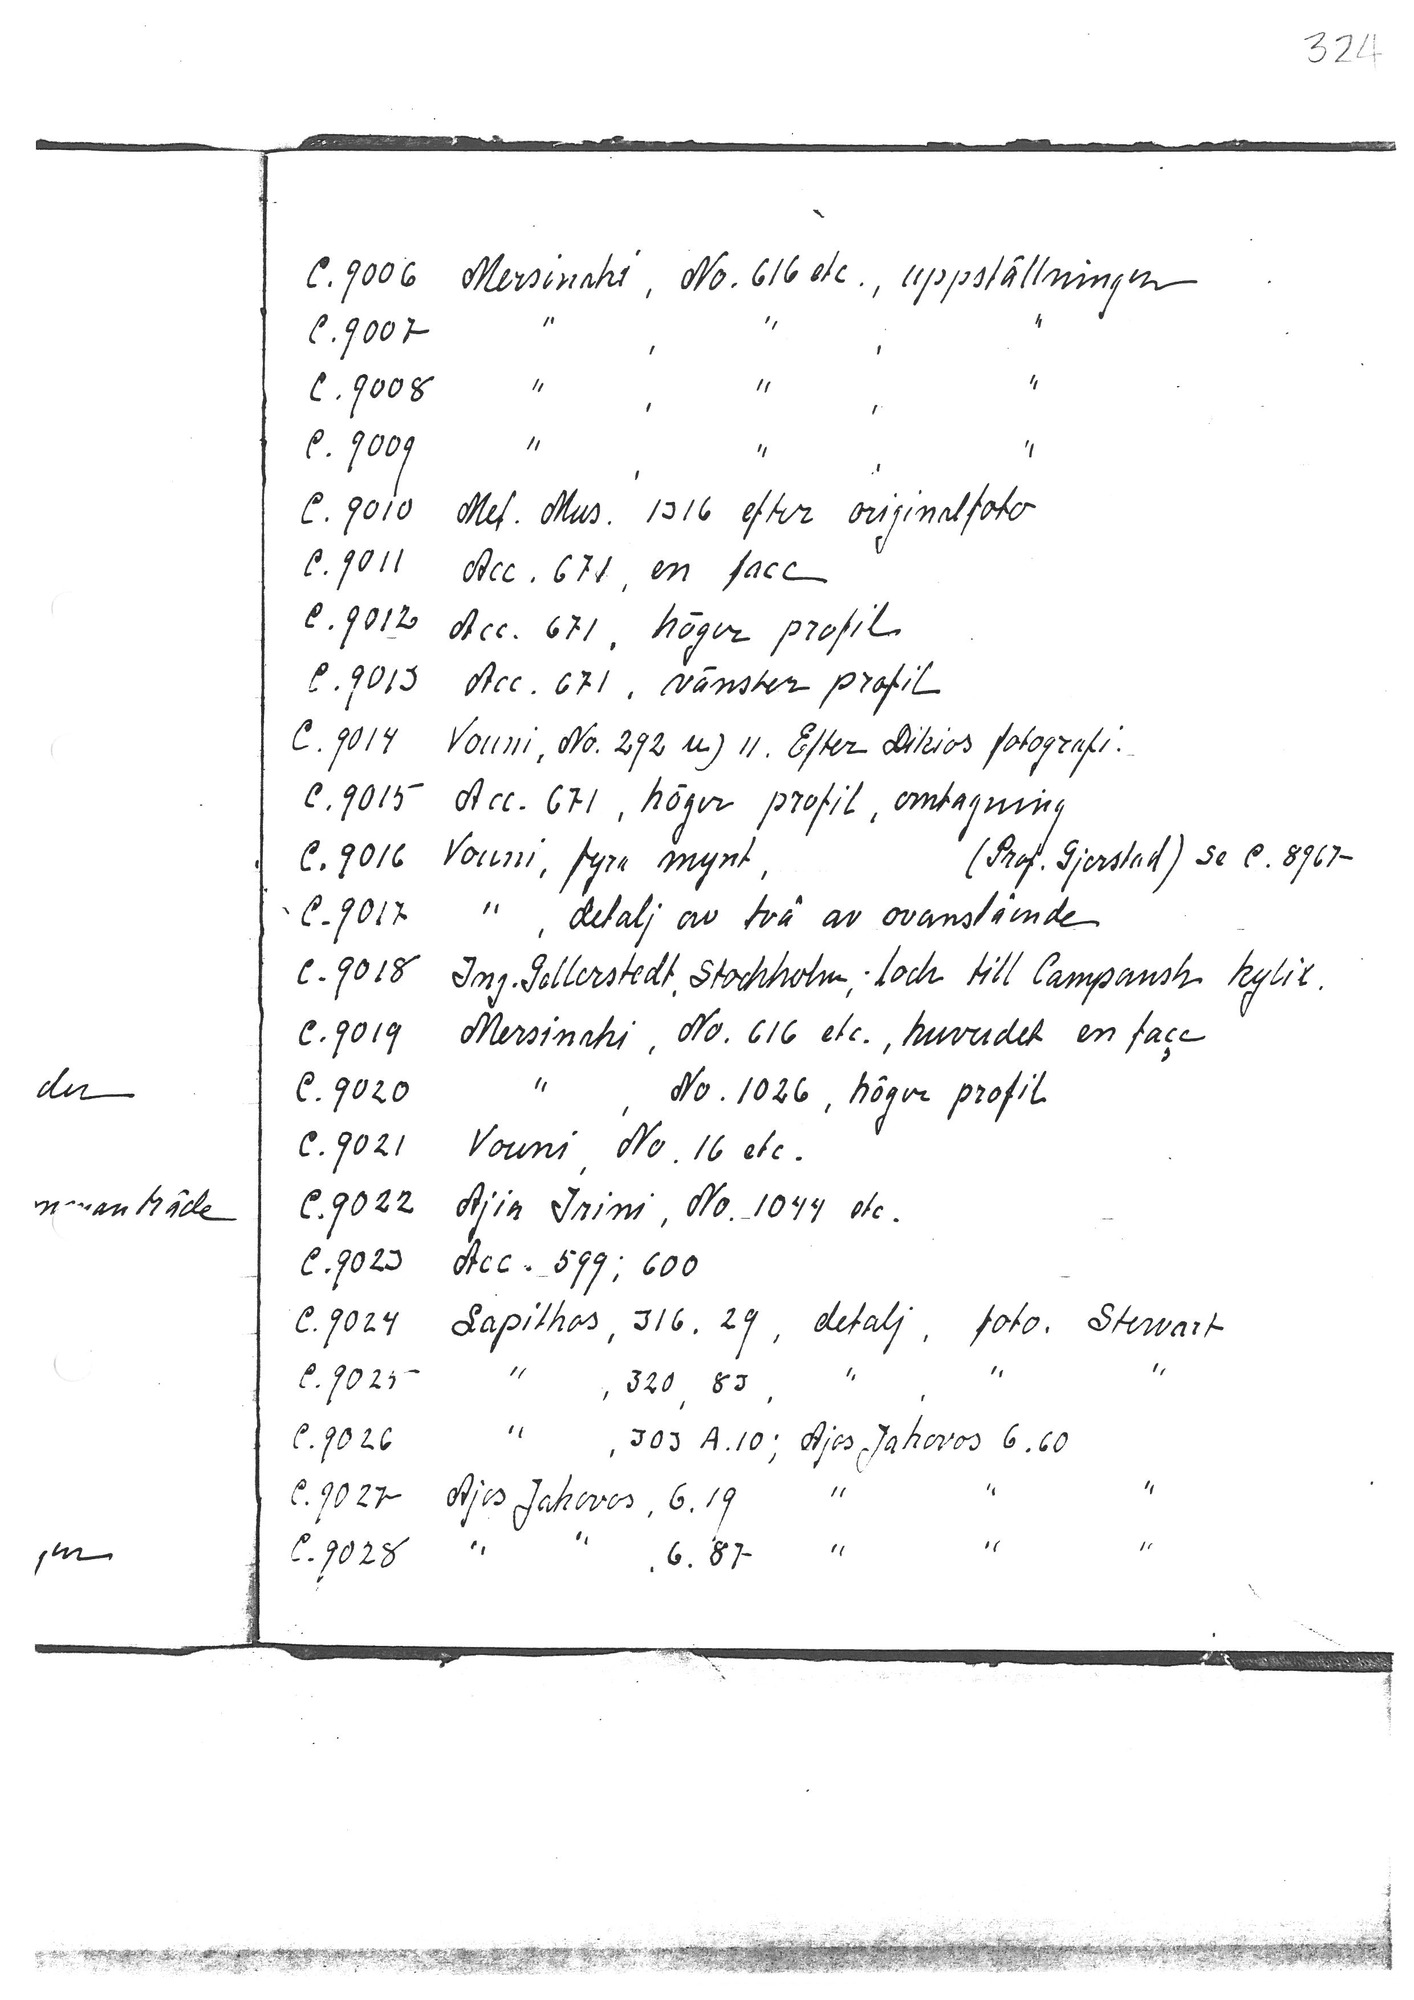 324
C.9006 Mersinaki, No. 616 etc., uppställningen
C.9007 " , " , "
C.9008 " , " , "
C.9009 " , " , "
C.9010 Met. Mus. 1316 efter originalfoto
C.9011 Acc. 671, en face
C.9012 Acc. 671, höger profil
C.9013 Acc. 671, vänster profil
C.9014 Vouni, No. 292 u) 11. Efter Dikios fotografi.
C.9015 Acc. 671, höger profil, omtagning
C.9016 Vouni, fyra mynt, (Prof. Gjerstad) se C. 8967
C.9017 " , detalj av två av ovanstående
C.9018 Ing. Gellerstedt, Stockholm, lock till Campansk kylix.
C.9019 Mersinaki, No. 616 etc., huvudet en façe
der
C.9020 " , No. 1026, höger profil
C.9021 Vouni, No. 16 etc.
manträde
C.9022 Ajia Irini, No. 1044 etc.
C.9023 Acc. 599; 600
C.9024 Lapithos, 316. 29, detalj, foto. Stewart
C.9025 " , 320, 83, " , " "
C.9026 " , 303 A.10; Ajos Jakovos 6.60
C.9027 Ajos Jakovos, 6.19 " " "
C.9028 " " , 6.87 " " "